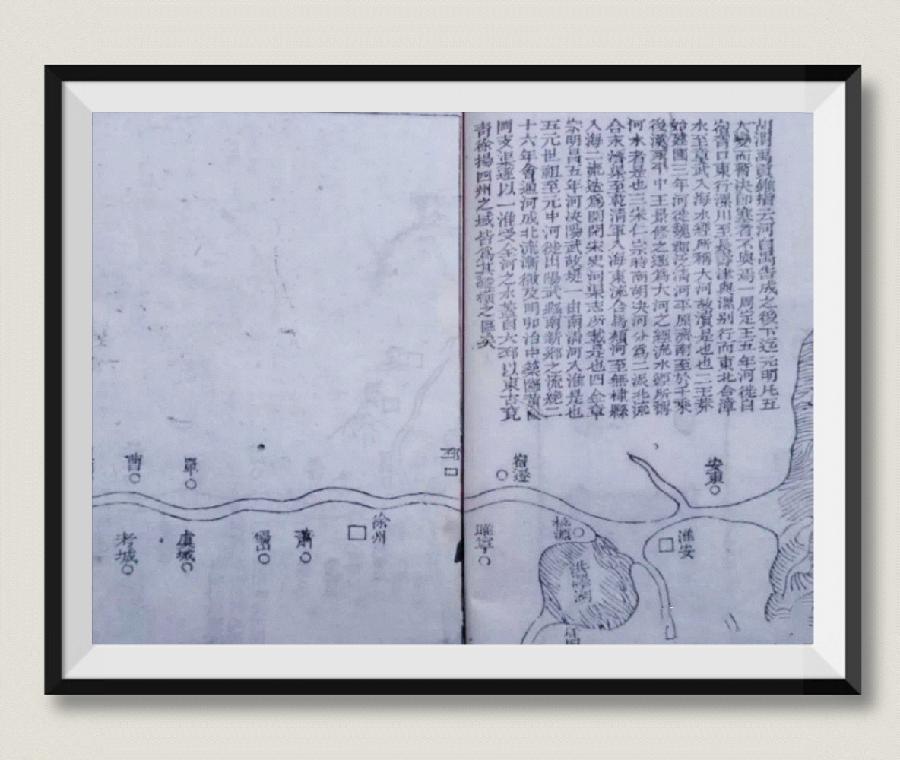 胡渭禹貢錐指云河自禹告成之後下迄元明凡五
大變而暫決即塞者不與焉一周定王五年河徙自
宿胥口東行漯川至長壽津與漯別行而東北合漳
水至章武入海水經所稱大河故瀆是也二王莽
始建國三年河徙魏郡從清河平原濟南至於千乘
後漢永平中王景修之遂爲大河之經流水經所稱
河水者是也三宋仁宗時商胡決河分爲二派北流
合永濟渠至乾清軍入海東流合馬頰河至無棣縣
入海二流迭爲開閉宋史河渠志所載是也四金章
宗明昌五年河決陽武故堤一由南清河入淮是也
五元世祖至元中河徙出陽武縣南新鄉之流絕二
十六年會通河成北流漸微及明弘治中築斷黃陵
岡支渠遂以一淮受全河之水蓋自大邳以東古兗
青徐揚四州之域皆爲其糜爛之區矣
安東
宿遷
淮安
桃源
洪澤湖
睢寧
邳
徐州
蕭
碭山
單
虞城
曹
考城